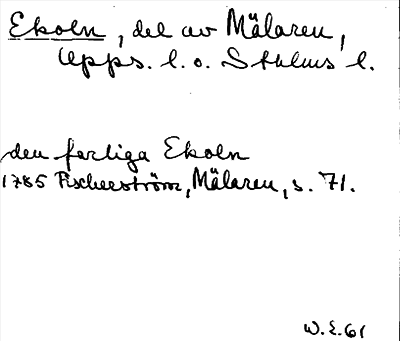 Ekoln, del av Mälaren,
Upps. l. o. Sthlms l.
den farliga Ekoln
1785 Fischerström, Mälaren, s. 71.
W.E. 61